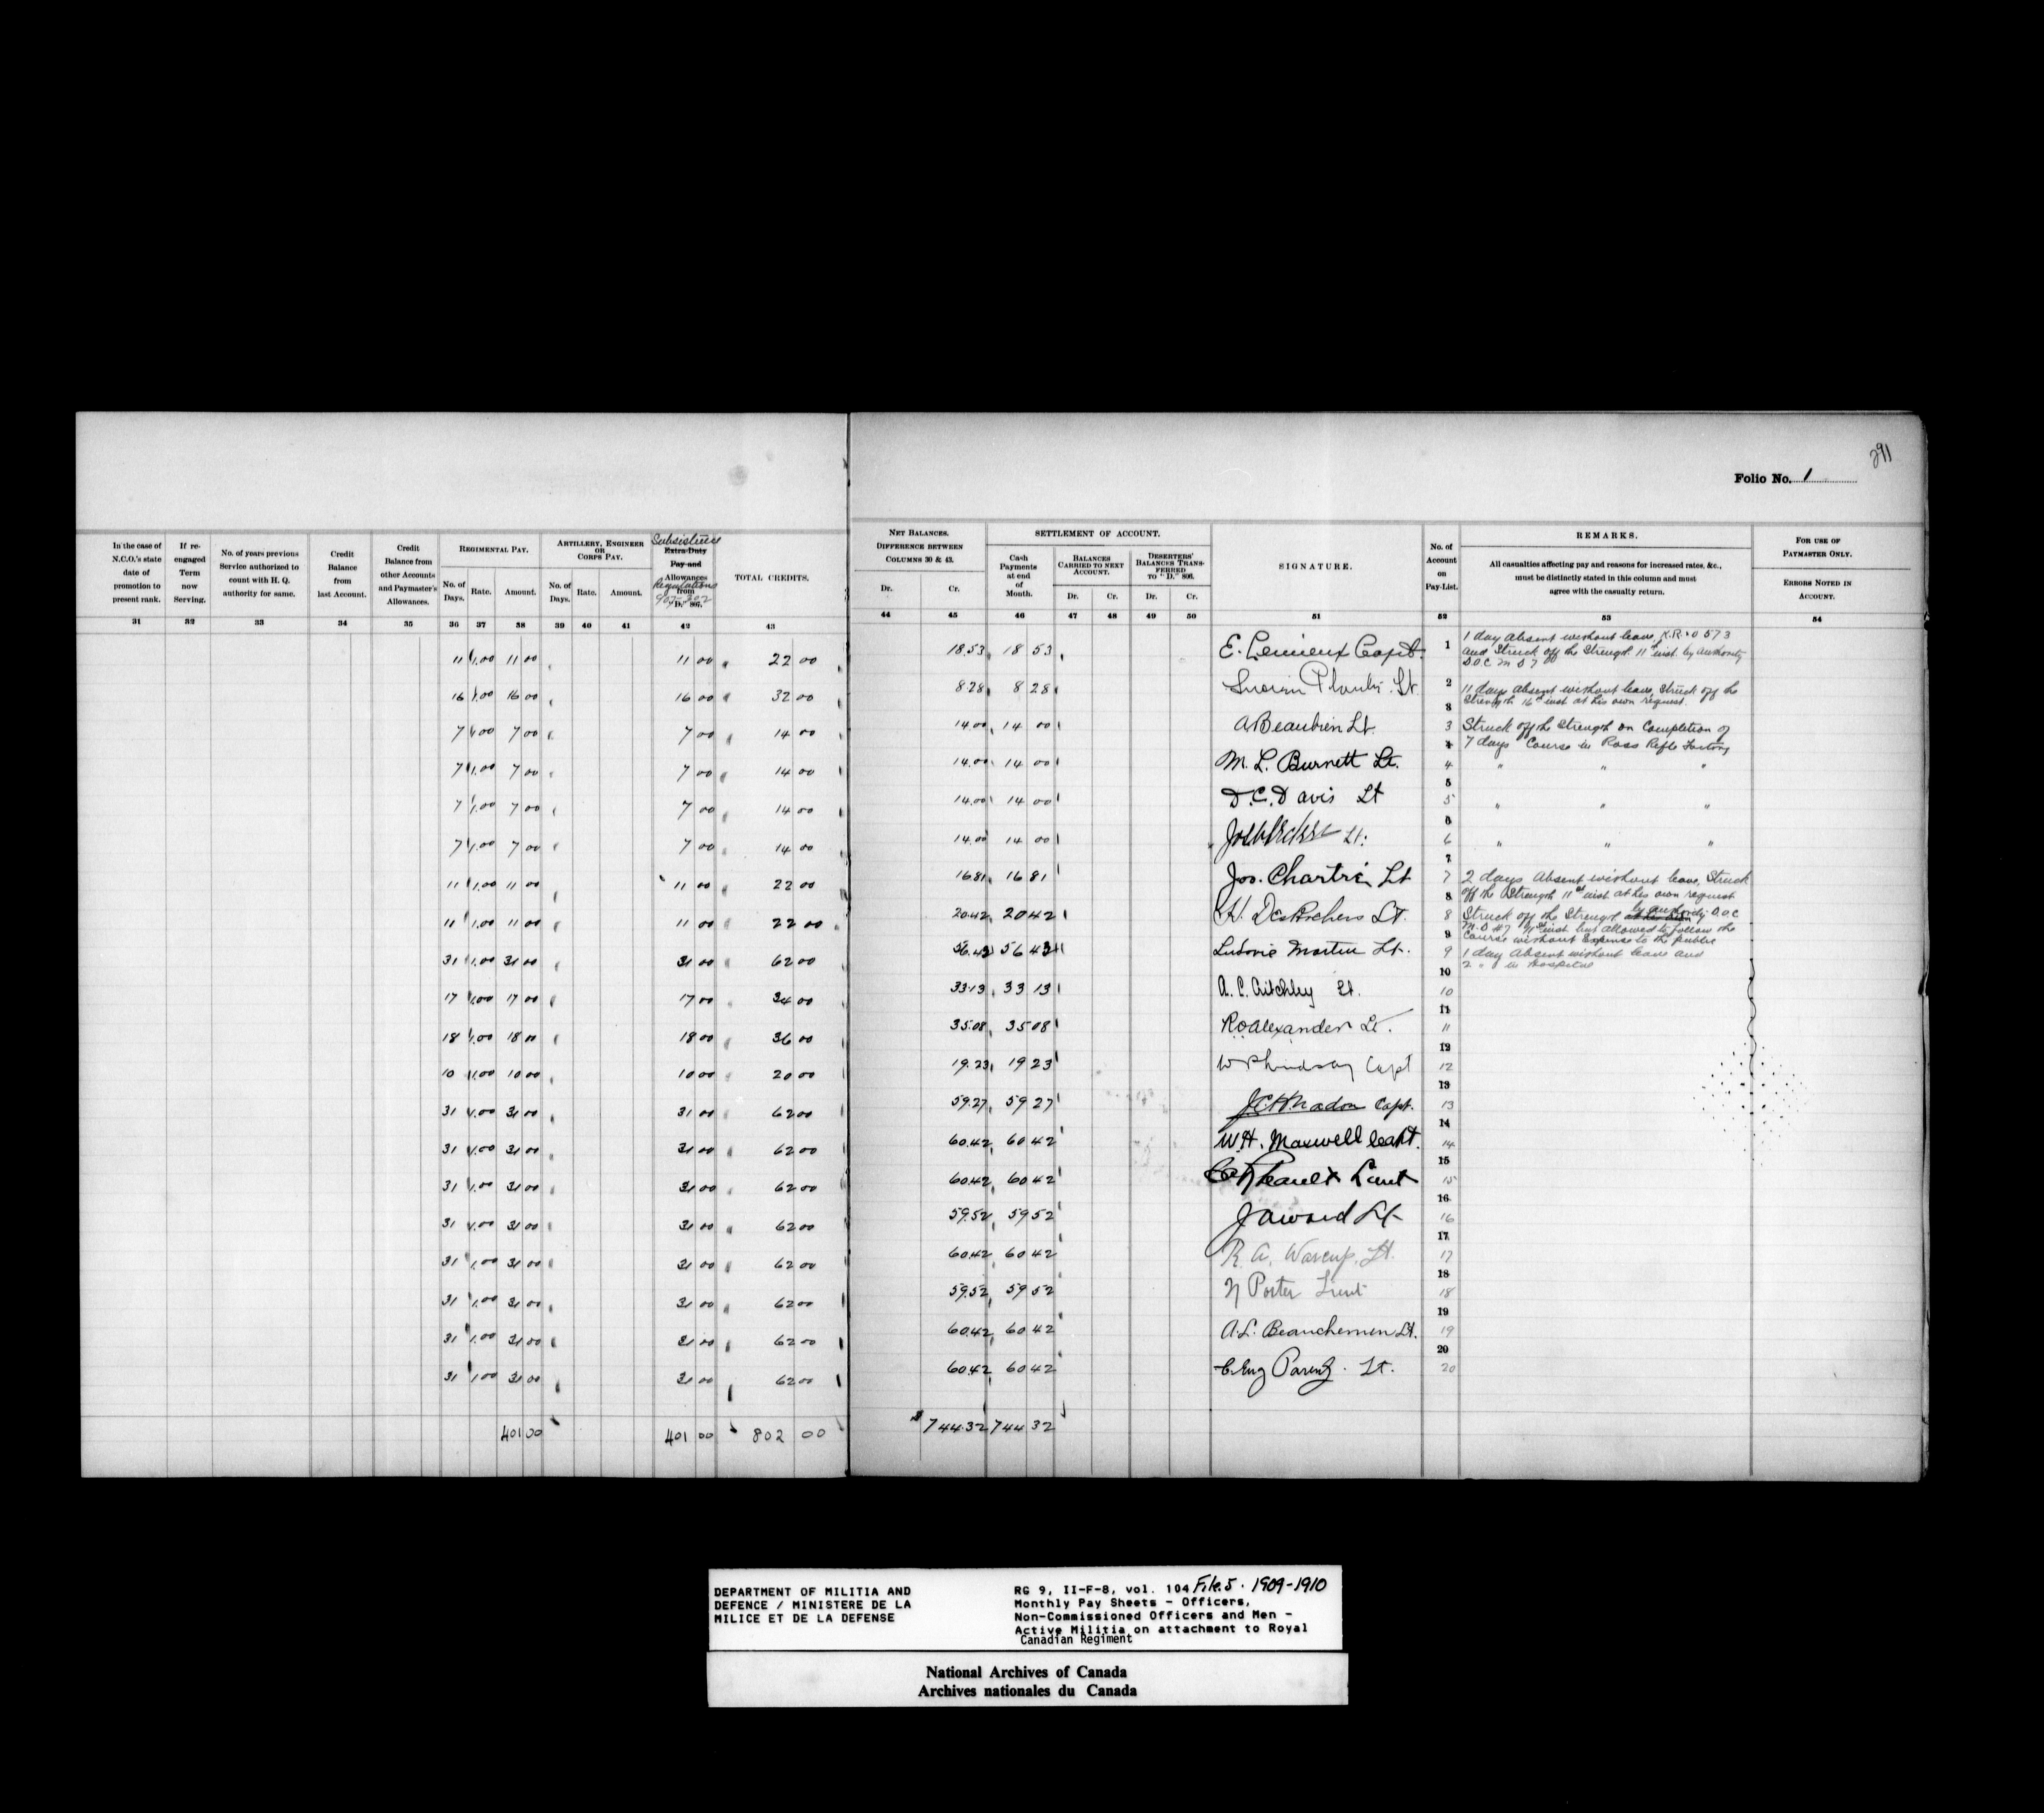 291
Folio No. 1
In the case of N.C.O.'s state date of promotion to present rank.
If re-engaged Term now Serving.
No. of years previous Service authorized to count with H. Q. authority for same.
Credit Balance from last Account.
Credit Balance from other Accounts and Paymaster's Allowances.
REGIMENTAL PAY.
No. of Days. Rate. Amount.
ARTILLERY, ENGINEER OR CORPS PAY.
No. of Days. Rate. Amount.
Subsistence
Extra Duty
Pay and
Allowances
Regulations
from
D. 807.
TOTAL CREDITS.
NET BALANCES.
DIFFERENCE BETWEEN COLUMNS 30 & 43.
Dr. Cr.
SETTLEMENT OF ACCOUNT.
Cash Payments at end of Month.
BALANCES CARRIED TO NEXT ACCOUNT.
Dr. Cr.
DESERTERS' BALANCES TRANSFERRED TO "D." 806.
Dr. Cr.
SIGNATURE.
No. of Account on Pay-List.
REMARKS.
All casualties affecting pay and reasons for increased rates, &c., must be distinctly stated in this column and must agree with the casualty return.
FOR USE OF PAYMASTER ONLY.
ERRORS NOTED IN ACCOUNT.
31 32 33 34 35 36 37 38 39 40 41 42 43 44 45 46 47 48 49 50 51 52 53 54
11 1.00 11 00 11 00 22 00 18.53 18 53 E. Lemieux Capt. 1 1 day absent without leave, K.R.&O 573
and Struck off the Strength 11th inst. by authority
D.O.C. M D 7
16 1.00 16 00 16 00 32 00 8.28 8 28 Lt. 2 11 days absent without leave, Struck off the
Strength 16th inst at his own request.
7 1.00 7 00 7 00 14 00 14.00 14 00 A Beaubien Lt. 3 Struck off the Strength on Completion of
7 days Course in Ross Rifle Factory
7 1.00 7 00 7 00 14 00 14.00 14 00 M. L. Burnett Lt. 4 " " "
7 1.00 7 00 7 00 14 00 14.00 14 00 D. C. Davis Lt 5 " " "
7 1.00 7 00 7 00 14 00 14.00 14 00 Lt. 6 " " "
11 1.00 11 00 11 00 22 00 16.81 16 81 Jos. Chartré Lt 7 2 days absent without leave, Struck
off the Strength 11th inst at his own request
11 1.00 11 00 11 00 22 00 20.42 20 42 H. DesRochers Lt. 8 Struck off the Strength at his own by authority D.O.C
M.D #7 11th inst but allowed to follow the
Course without Expense to the public
31 1.00 31 00 31 00 62 00 56.42 56 42 Ludovic Martin Lt. 9 1 day absent without leave and
2 " in Hospital
17 1.00 17 00 17 00 34 00 33.13 33 13 A. C. Aitchley Lt. 10
18 1.00 18 00 18 00 36 00 35.08 35 08 Alexander Lt. 11
10 1.00 10 00 10 00 20 00 19.23 19 23 W P Lindsay Capt 12
31 1.00 31 00 31 00 62 00 59.27 59 27 Capt. 13
31 1.00 31 00 31 00 62 00 60.42 60 42 W. H. Maxwell Capt. 14
31 1.00 31 00 31 00 62 00 60.42 60 42 Lieut 15
31 1.00 31 00 31 00 62 00 59.52 59 52 J A Ward Lt 16
31 1.00 31 00 31 00 62 00 60.42 60 42 R. A. Warcup, Lt. 17
31 1.00 31 00 31 00 62 00 59.52 59 52 Porter Lieut 18
31 1.00 31 00 31 00 62 00 60.42 60 42 A. L. Beauchemin Lt. 19
31 1.00 31 00 31 00 62 00 60.42 60 42 Eug Parent. Lt. 20
401 00 401 00 802 00 $ 744.32 744 32
DEPARTMENT OF MILITIA AND
DEFENCE / MINISTERE DE LA
MILICE ET DE LA DEFENSE
RG 9, II-F-8, vol. 104 File 5. 1909-1910
Monthly Pay Sheets - Officers,
Non-Commissioned Officers and Men -
Active Militia on attachment to Royal
Canadian Regiment
National Archives of Canada
Archives nationales du Canada